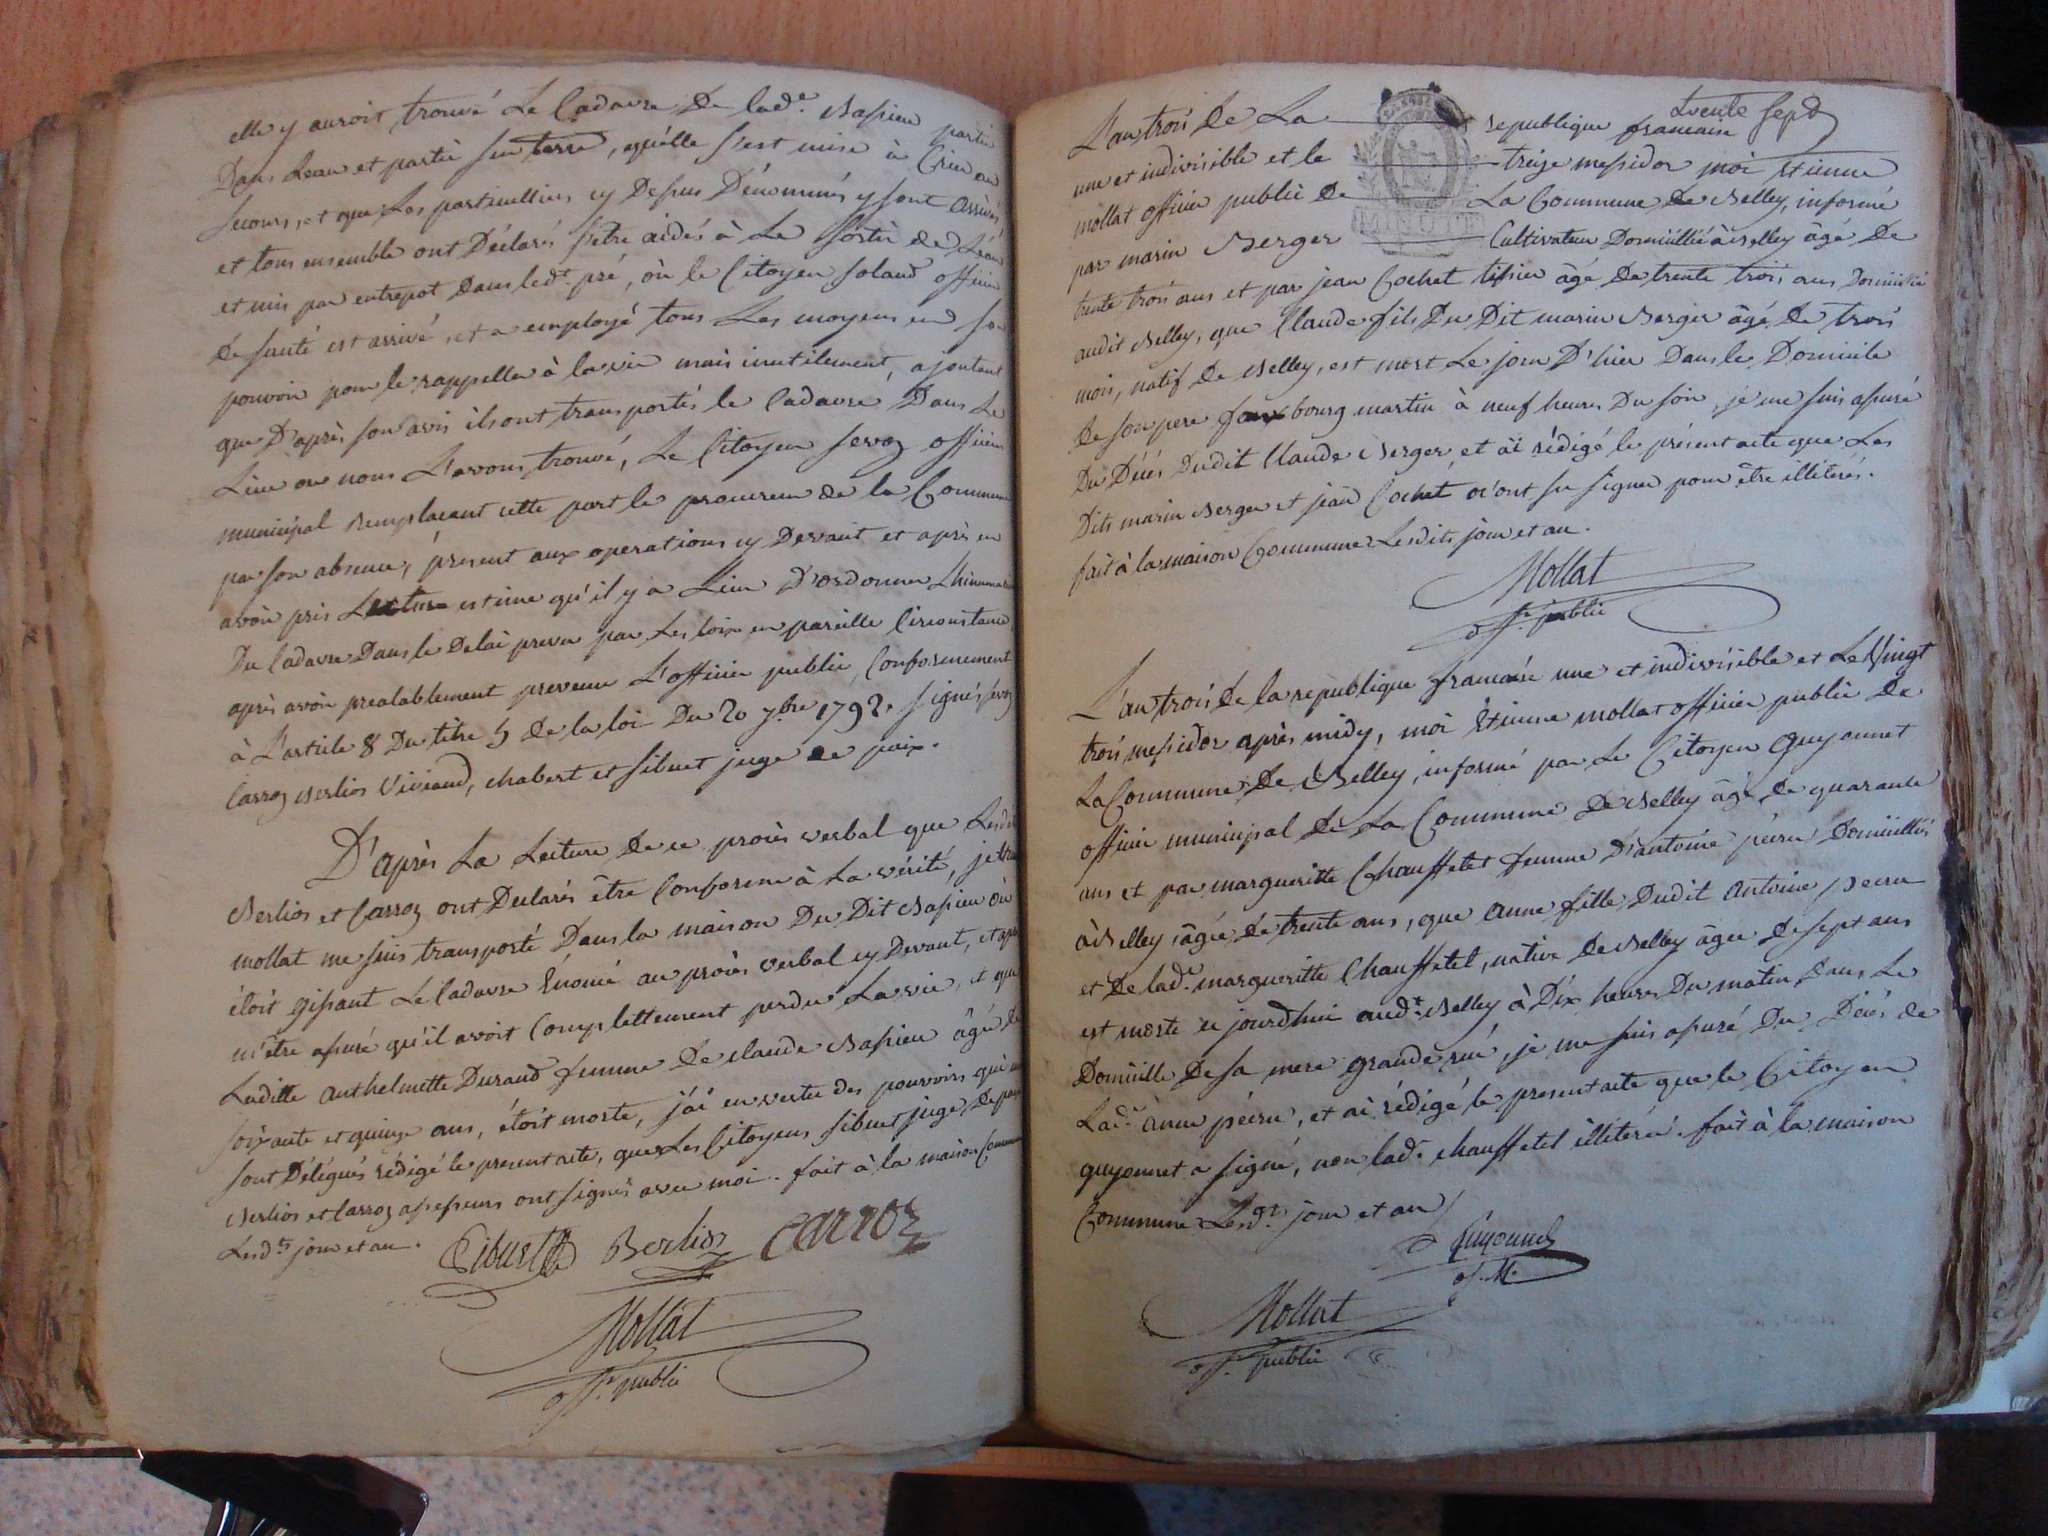 elle y auroit trouvé Le Cadavre De lade. Bassieu partie
Dans Leau et partie sur terre, qu'elle s'est mise à Crier au
secours, et que Les particulliers cy Dessus Dénommés y sont arrivés
et tous ensemble ont Déclarés s'etre aidés à Le sortir de Léau
et mis par entrepot Dans ledt. pré, où le Citoyen Soland officier
De santé est arrivé, et a employé tous Les moyens en son
pouvoir pour le rappeller à la vie mais inutilement, ajoutant
que D'après son avis ils ont transportés le Cadavre Dans Le
Lieu ou nous L'avons trouvé, Le Citoyen Sevoz officier
municipal Remplacant cette part le procureur de la Commune
par son absence, présent aux operations cy Devant et après en
avoir pris Lecture estime qu'il y a Lieu D'ordonner Linhumation
Du Cadavre Dans le Delai prevu par Les loix en pareille Circonstance
après avoir prealablement prevenu L'officier public, Conformement
à L'article 8 Du titre 5 de la loi Du 20 7bre 1792. signés Sevoz
Carroz Berlioz Viviand, Chabert et Sibuet juge de paix.
D'après La Lecture De ce procès verbal que Lesdits
Berlioz et Carroz ont Declarés être Conforme à La vérité, je
mollat me suis transporté Dans la maison Du Dit Bassieu où
étoit gissant Le Cadavre Énoncé au procès verbal cy Devant, et après
m'être assuré qu'il avoit Complettement perdu La vie, et que
Laditte anthelmette Durand femme De Claude Bassieu âgé De
soixante et quinze ans, étoit morte, j'ai en vertu des pouvoirs qui me
sont Délégués rédigé le present acte, que Les Citoyens Sibuet juge De paix
Berlioz et Carroz assesseurs ont signés avec moi. fait à la maison Commune
Lesdts jour et an. Sibuet Berlioz Carroz
Mollat
offr. public
trente sept
L'an trois De La republique francaise
une et indivisible et le treize messidor moi Etienne
mollat officier public De La Commune De Belley, informé
MINUTE
par marin Berger Cultivateur Domicillié à Belley âgé De
trente trois ans et par jean Cochet tissier âgé De trente trois ans Domicilié
audit Belley, que Claude fils Du Dit marin Berger âgé De trois
mois, natif De Belley, est mort Le jour D'hier Dans le Domicile
De son pere faux bourg martin à neuf heures Du soir, je me suis assuré
Du Décés Dudit Claude Berger et ai rédigé le présent acte que Les
Dits marin Berger et jean Cochet n'ont su signer pour être illiterés.
fait à la maison Commune Lesdits jour et an.
Mollat
offr. public
L'an trois De la republique francaise une et indivisible et Le Vingt
trois messidor après midy, moi Étienne mollat officier public De
La Commune De Belley, informé par Le Citoyen Guyonnet
officier municipal De La Commune De Belley âgé de quarante
ans et par margueritte Chauffetet femme D'antoine pécru Domicilliés
à Belley âgée De trente ans, que anne fille Dudit Antoine pecru
et De lade. margueritte Chauffetet, native De Belley âgée De sept ans
est morte ce jourdhui audt. Belley à Dix heures Du matin Dans Le
Domicille De sa mere Grande rue, je me suis assuré Du Décés de
Lade. anne pécru, et ai rédigé le present acte que le Citoyen
guyonnet a signé, non lade. chauffetet illitérée. fait à la maison
Commune Lesdt. jour et an
Guyonnet
of. M.
Mollat
offr. public